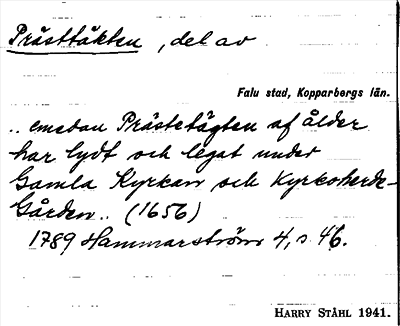 Prästtäkten, del av
Falu stad, Kopparbergs län.
.. emedan Prästetägten af ålder
har lydt och legat under
Gamla Kyrkan och Kyrkoherde-
Gården.. (1656)
1789 Hammarström 4, s. 46.
HARRY STÅHL 1941.